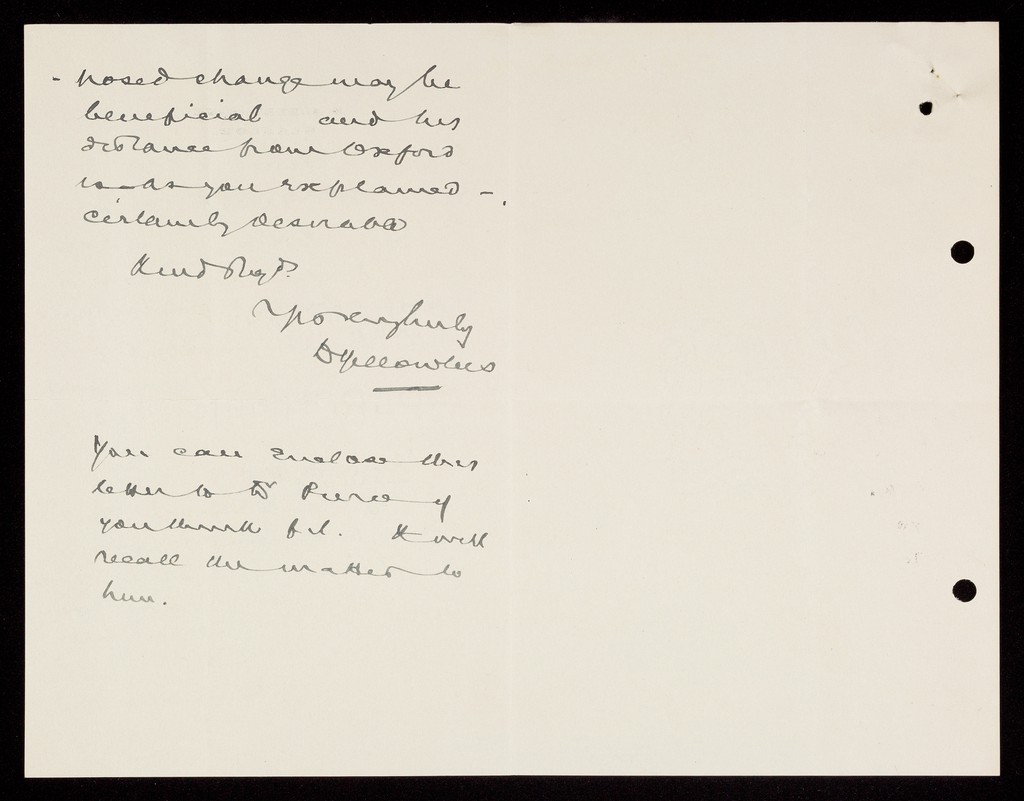 - posed change may be
beneficial and his
distance from Oxford
is - as you explained -
certainly desirable
Kind Regds.
Yrs very truly
D Yellowlees
You can enclose this
letter to Dr Pierce if
you think fit. It will
recall the matter to
him.